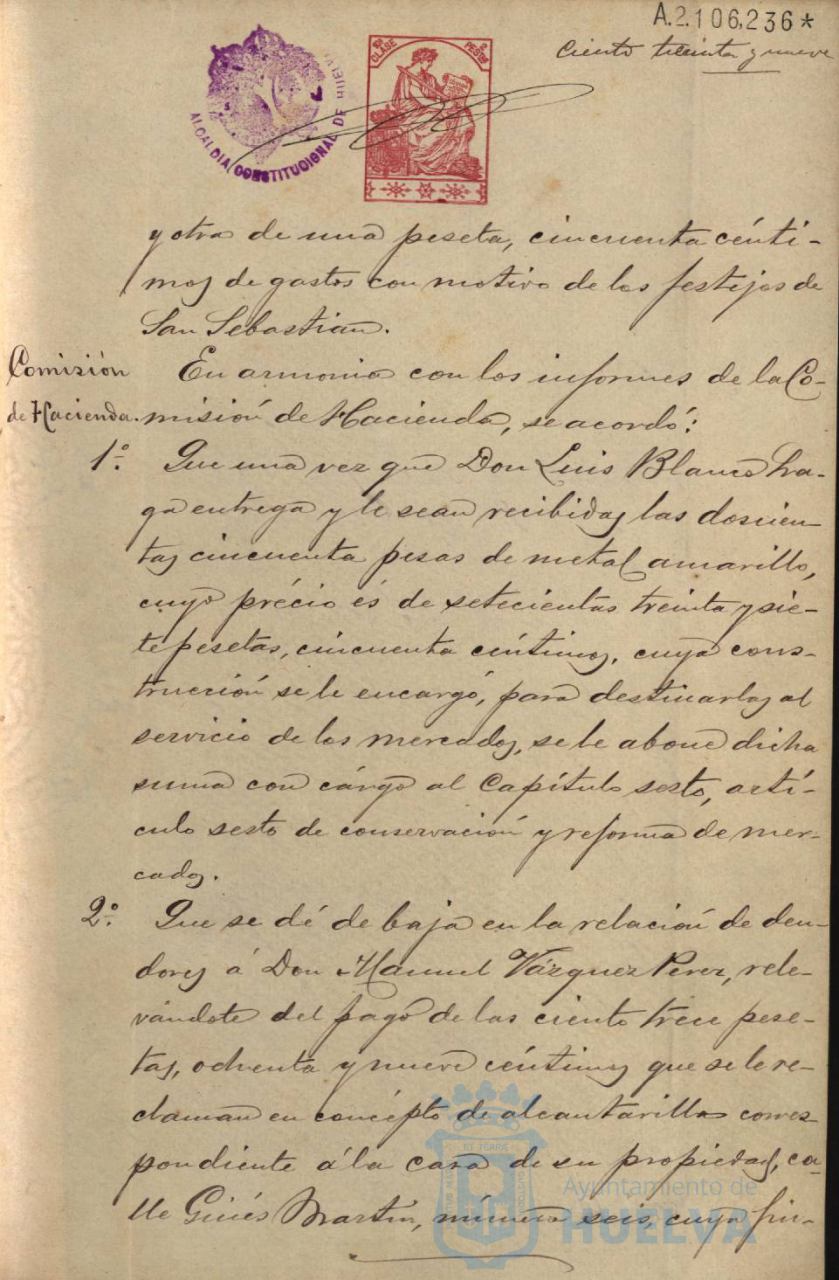 A.2.106,236*
Ciento treinta y nueve
ALCALDIA CONSTITUCIONAL DE HUELVA
10ª CLASE 2 PESETAS
y otra de una peseta, cincuenta cénti-
mos de gastos con motivo de los festejos de
San Sebastian.
Comisión
de Hacienda.
En armonia con los informes de la Co-
misión de Hacienda, se acordó:
1º. Que una vez que Don Luis Blanco ha-
ga entrega y le sean recibidas las doscien-
tas cincuenta pesas de metal amarillo,
cuyo précio és de setecientas treinta y sie-
te pesetas, cincuenta céntimos, cuya cons-
trucción se le encargó, para destinarlas al
servicio de los mercados, se le abone dicha
suma con cárgo al Capítulo sesto, artí-
culo sesto de conservación y reforma de mer-
cados.
2º. Que se dé de baja en la relación de deu-
dores á Don Manuel Vázquez Perez, rele-
vándote del pago de las ciento trece pese-
tas, ochenta y nueve céntimos que se le re-
claman en concépto de alcantarilla corres
pondiente á la casa de su propiedad, ca-
lle Ginés Martín, número seis, cuya fin-
Ayuntamiento de
HUELVA